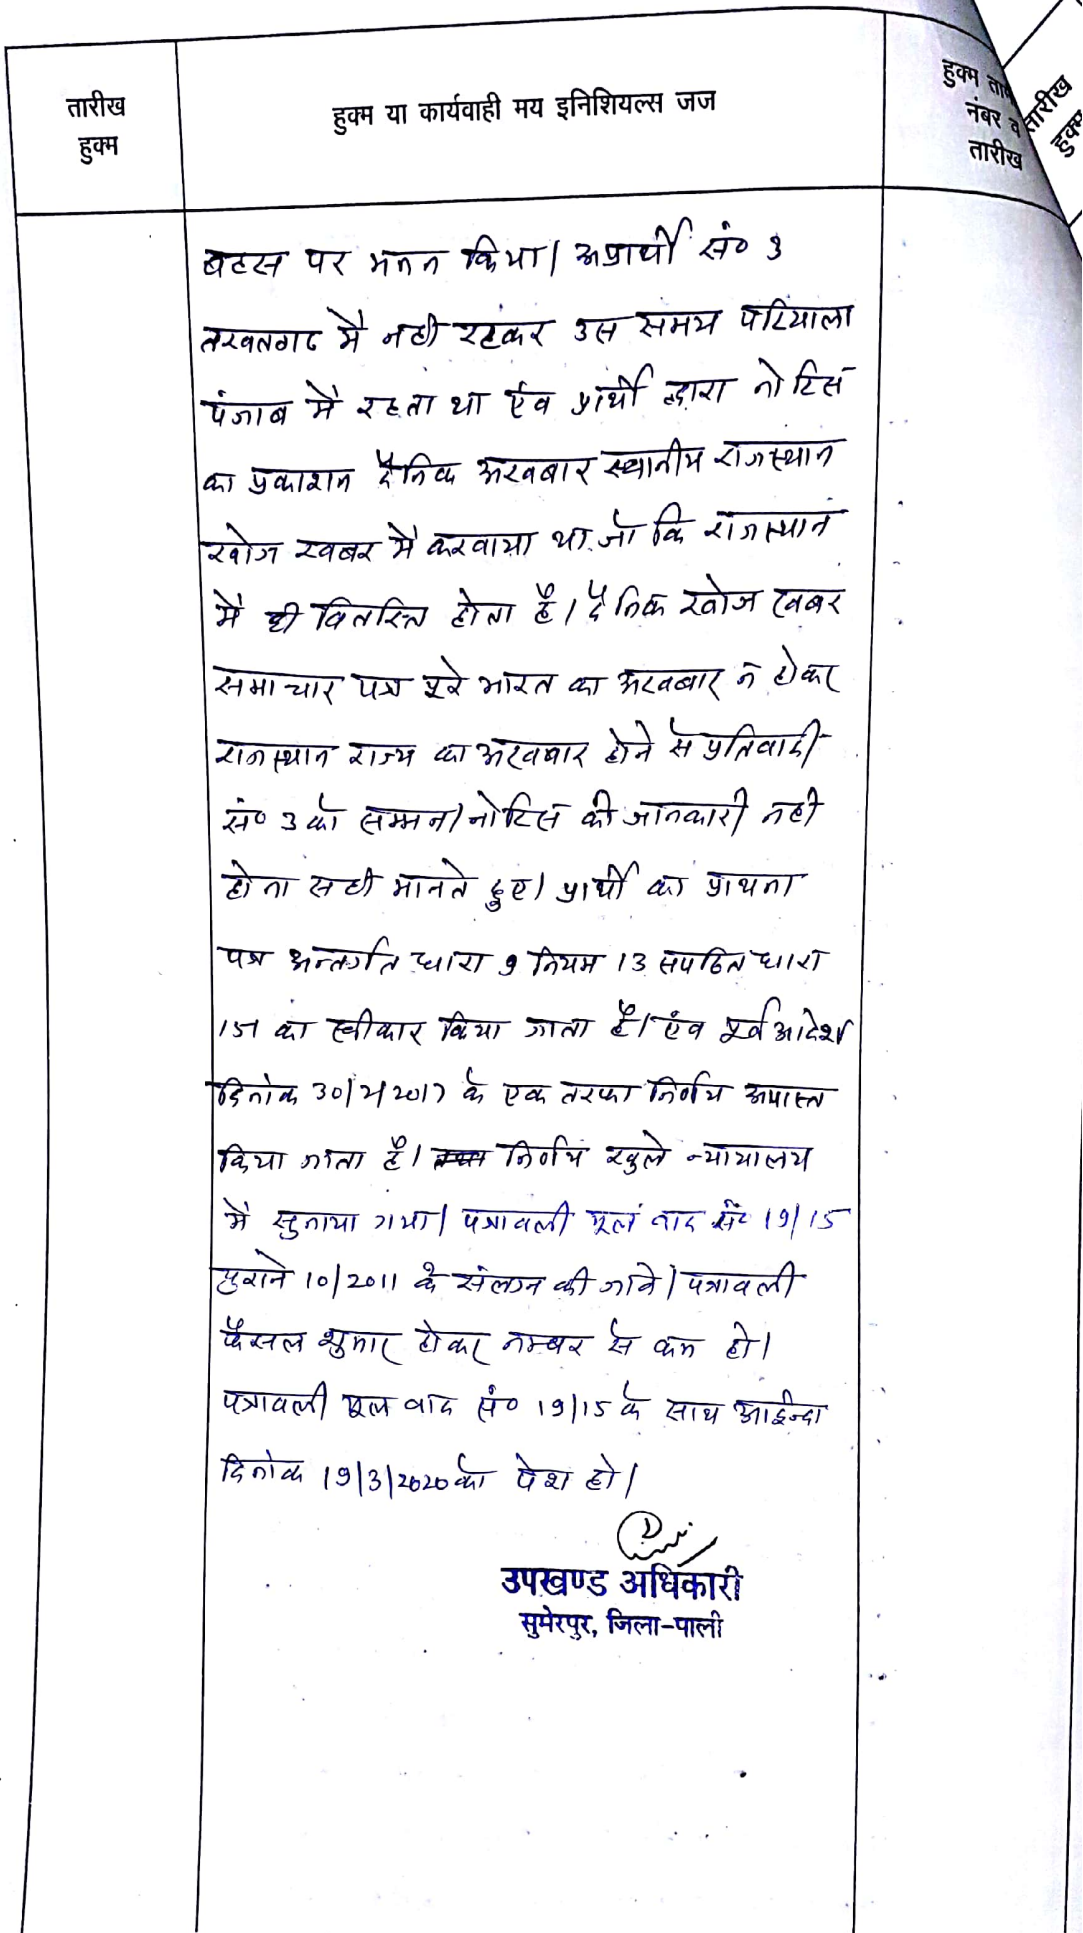 तारीख
हुक्म
हुक्म या कार्यवाही मय इनिशियल्स जज
हुक्म
नंबर व
तारीख
तारीख
हुक्म
बहस पर मनन किया। अप्रार्थी सं० 3
तखतगढ मै नही रहकर उस समय पटियाला
पंजाब मै रहता था एंव प्रार्थी द्वारा नोटिस
का प्रकाशन दैनिक अखबार स्थानीय राजस्थान
खोज खबर मै करवाया था जो कि राजस्थान
मै ही वितरित होता है। दैनिक खोज खबर
समाचार पत्र पूरे भारत का अखबार न होकर
राजस्थान राज्य का अखबार होने से प्रतिवादी
सं० 3 को सम्मन/नोटिस की जानकारी नही
होना सही मानते हुए। प्रार्थी का प्राथना
पत्र अन्तर्गत धारा 9 नियम 13 सपठित धारा
151 का स्वीकार किया जाता है। एंव पूर्व आदेश
दिनांक के एक तरफा निर्णय अपास्त
किया जाता है। निर्णय खुले न्यायालय
मै सुनाया गया। पत्रावली मूल वाद सं० 19/15
पुराने 10/2011 के संलग्न की जावे। पत्रावली
फैसल शुमार होकर नम्बर से कम हो।
पत्रावली मूल वाद सं० 19/15 के साथ आईन्दा
दिनांक 19/3/2020 को पेश हो।
उपखण्ड अधिकारी
सुमेरपुर, जिला-पाली